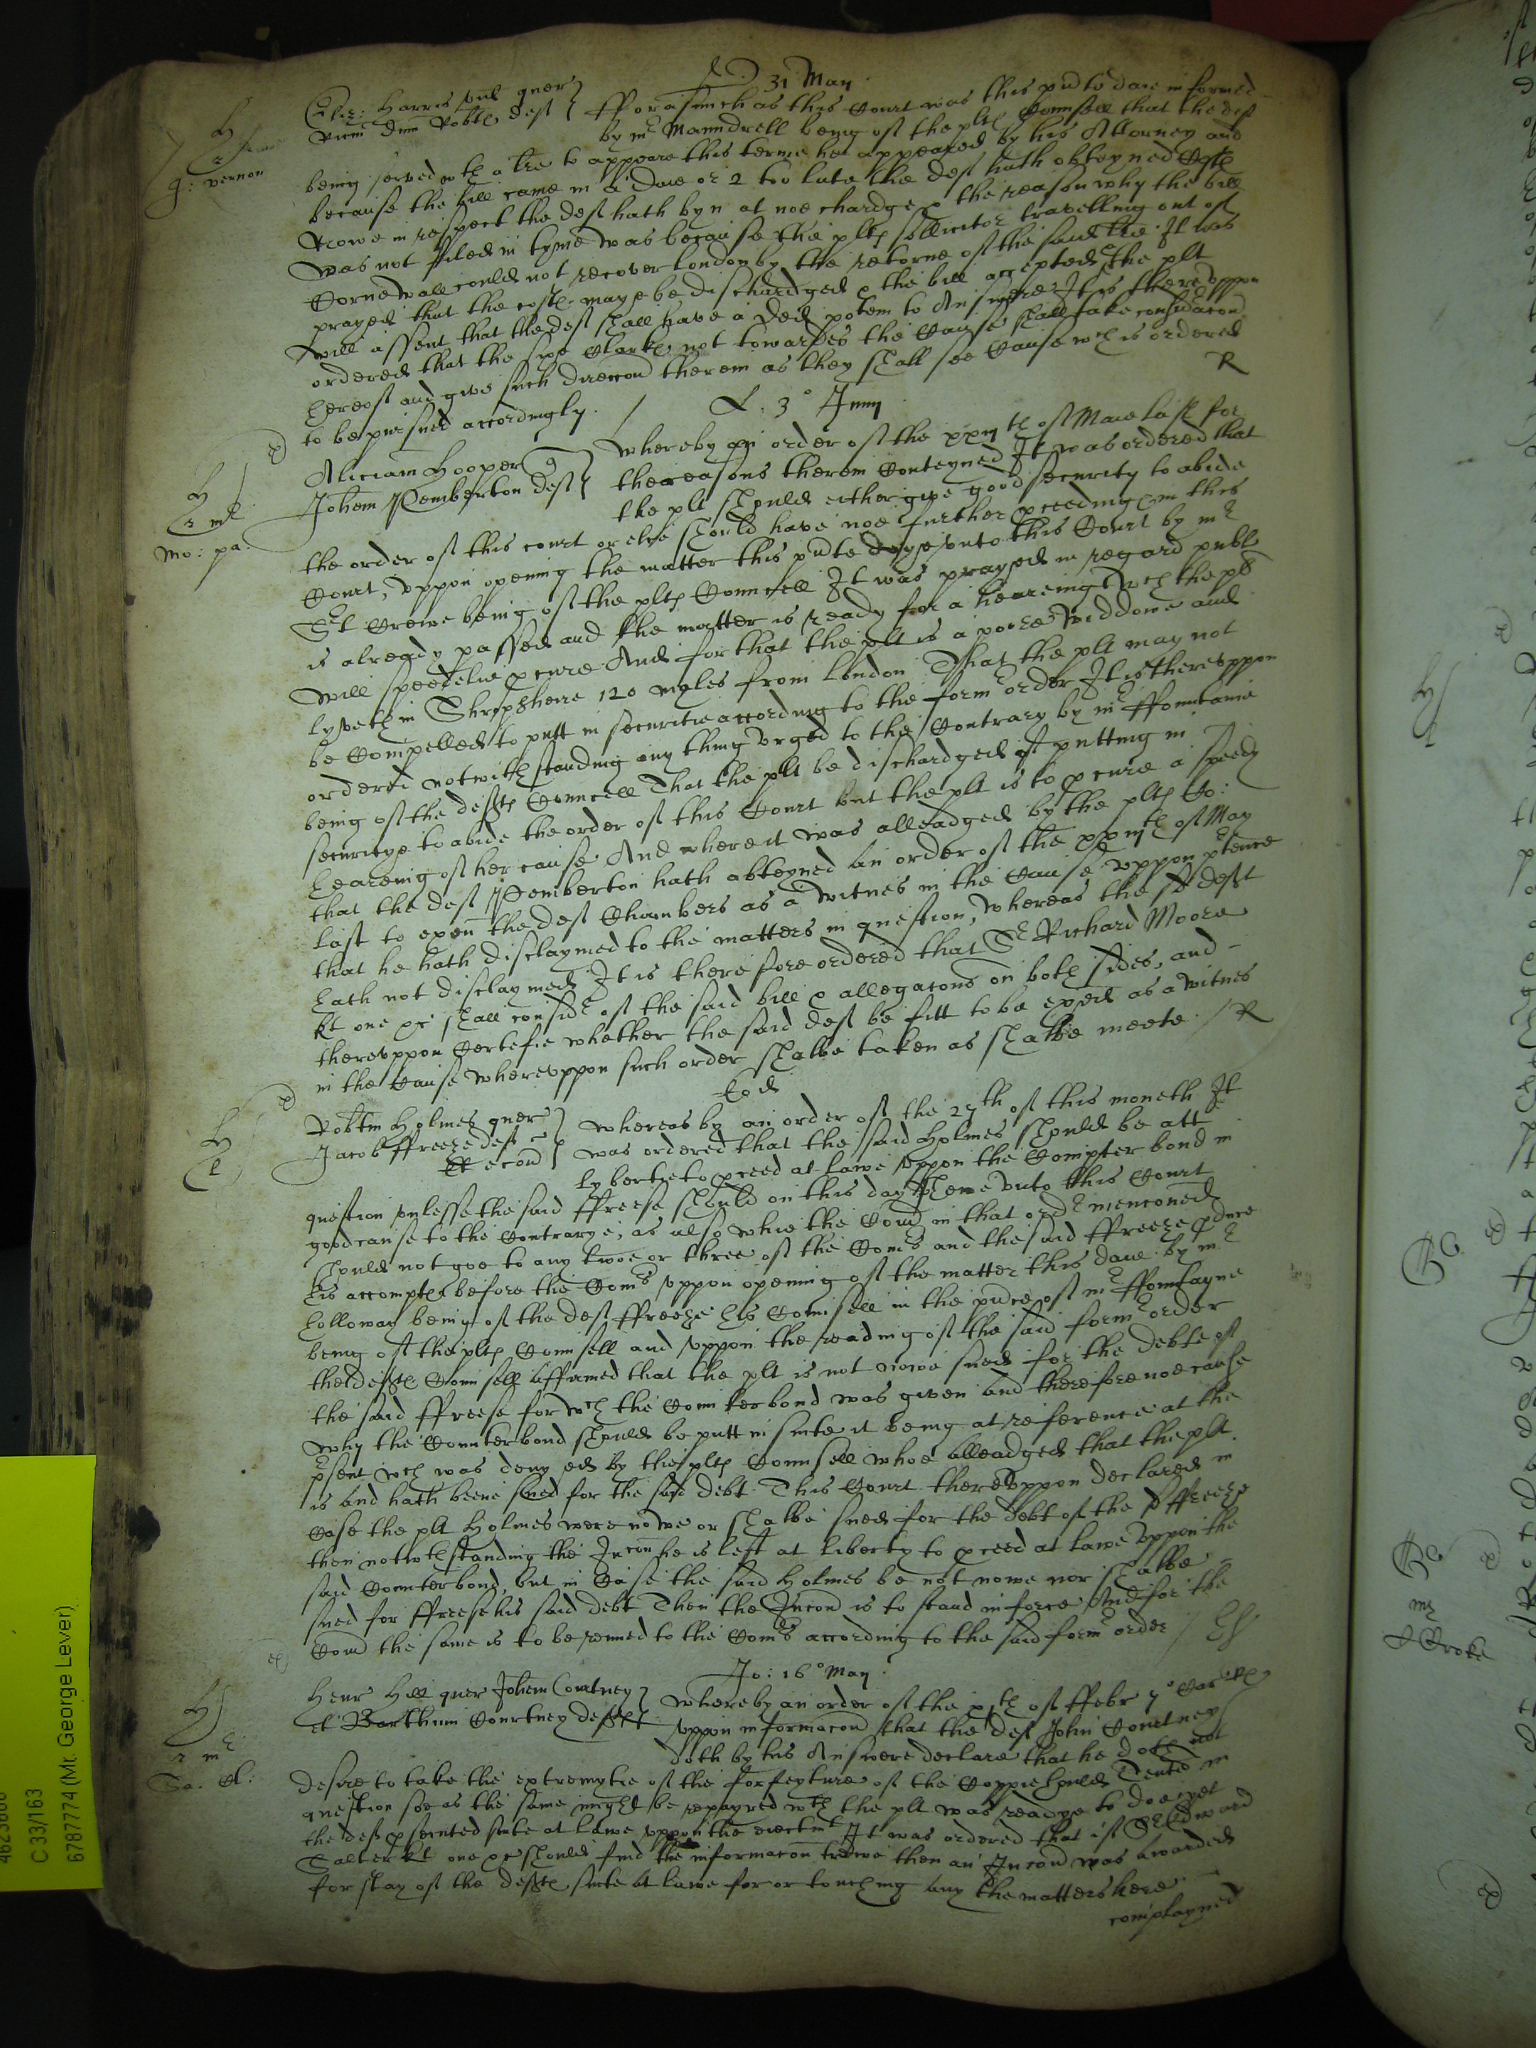 D 31 May
Eliz: Harris vid quer
Ricm Dun Robts deft } fforasmuch as this Court was this pnte daie informed
by mr Maundrell being of the plts Counsell that the deft
being served wth a lre to appeare this terme he appeared by his Attorney and
because the bill came in a daie or 2 too late the deft hath obteyned Costs
Nowe in respect the deft hath byn at noe chardge & the reason why the bill
was not filed in tyme was because the plts sollicitor travelling out of
Cornewall could not recover London by the retorne of the said lre It was
prayed that the costs maye be dischardged & the bill accepted the plt
will assent that the deft shall have a Ded potem to Answere It is thereuppon
ordered that the sixe Clarks not towardes the Cause shall take consideracon
hereof and give such direccon therein as they shall see Cause wch is ordered
to be pursued accordingly. / R
g: vernon
L: 3° Junij
Aliciam Hooper q
Johem Pemberton deft } whereby an order of the xxijth of Maie last for
the reasons therein Conteyned It was ordered that
the plt should either give good security to abide
mo: pa:
the order of this court or else should have noe further proceedings in this
Court, uppon opening the matter this pnte daye unto this Court by mr
Srt Crewe being of the plts Councell It was prayed in regard publ
is already passed and the matter is ready for a heareing wch the plt
will speedelie procure And for that the plt is a poore widdowe and
lyveth in Shropsheire 120 myles from London That the plt may not
be Compelled to putt in securitie according to the form order It is thereuppon
ordered notwithstanding any thing urged to the Contrary by mr ffountaine
being of the defts Councell That the plt be dischardged of putting in
securitye to abide the order of this Court but the plt is to procure a speedy
heareing of her cause And where it was alleadged by the plts Co:
that the deft Pemberton hath obteyned an order of the xxijth of May
last to exen the deft Chambers as a witnes in the Cause uppon ptence
that he hath disclaymed to the matters in question, whereas the sd deft
hath not disclaymed It is therefore ordered that Sr Richard Moore
kt one &c shall consider of the said bill & allegacons on both sides, and
thereuppon Certefie whether the said deft be fitt to be exed as a witnes
in the Cause whereuppon such order shalbe taken as shalbe meete. / R
Eod
Robtm Holmes quer
Jacob ffreeze deft
et econ } whereas by an order of the 27th of this moneth It
was ordered that the said Holmes should be att
lybertie to proceed at lawe uppon the Compter bond in
question unlesse the said ffreese should on this day shewe unto this Court
good cause to the Contrarye, as also whie the Com in that ordr mencioned
should not goe to any twoe or three of the Comrs and the said ffreeze produce
his accompts before the Comrs uppon opening of the matter this daie by mr
Holloway being of the deft ffreeze his Counsell in the pnce of mr ffountayne
being of the plts Counsell and uppon the reading of the said form order
the defts Counsell affirmed that the plt is not nowe sued for the debte of
the said ffreese for wch the Counterbond was given and therefore noe cause
why the Counterbond should be putt in suite it being at reference at the
psent wch was denyed by the plts Counsell whoe alleadged that the plt
is and hath beene sued for the said debt This Court thereuppon declared in
Case the plt Holmes were nowe or shalbe sued for the debt of the sd ffreeze
then notwthstanding the Incon he is left at liberty to proceed at lawe uppon the
said Counterbond, but in Case the said Holmes be not nowe nor shalbe
sued for ffreese his said debt Then the Incon is to stand in force And for the
Com the same is to be renued to the Comrs according to the said form order /
Jo: 16° May
Henr Hill quer Johem Courtney
et Barthum Courtney defts } whereby an order of the xth of ffebr 7° Car
uppon informacon that the deft John Courtney
doth by his Answere declare that he doth not
desire to take the extremytie of the forfeyture of the Coppiehould Tents in
question soe as the same might be repayred wth the plt was readye to doe yet
the deft prosecuted suite at lawe uppon the eiectmt It was ordered that if Sr Edward
Salter kt one &c should find the informacon trewe then an Incon was awarded
for stay of the defts suite at lawe for or touching any the matters here
complayned
C 33/163
6787774 (Mr. George Lever)
mr
Croke